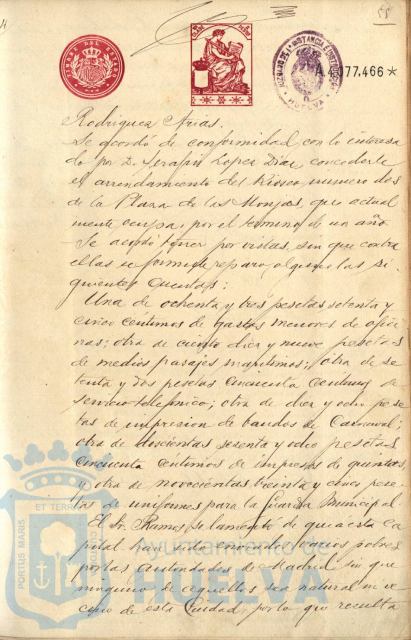 TIMBRE DEL ESTADO
JUZGADO DE 1ª INSTANCIA E INSTRUCCION
HUELVA
A.4,077.466*
Rodriguez Arias.
Se acordó de conformidad con lo interesa
do por D. Serafin Lopez Diaz concederle
el arrendamiento del Kiosco numero dos
de la Plaza de las Monjas, que actual
mente ocupa, por el termino de un año.
Se acordó tener por vistas, sin que contra
ellas se formule reparo alguno las si
guientes cuentas:
Una de ochenta y tres pesetas setenta y
cinco centimos de gastos menores de ofici
nas; otra de ciento diez y nueve pesetas
de medios pasajes maritimos; otra de se
tenta y dos pesetas cincuenta centimos de
servicio telefonico; otra de diez y ocho pese
tas de impresion de bandos de Carnaval;
otra de doscientas sesenta y ocho pesetas
cincuenta centimos de impresos de quintas,
y otra de novecientas treinta y cinco pese
tas de uniformes para la Guardia Municipal.
El Sr. Ramos se lamentó de que á esta Ca
pital hayan sido enviados varios pobres
por las autoridades de Madrid sin que
ninguno de aquellos sea natural ni ve
cino de esta Ciudad, por lo que resulta
PORTUS MARIS
ET TERRAE
Ayuntamiento de
HUELVA